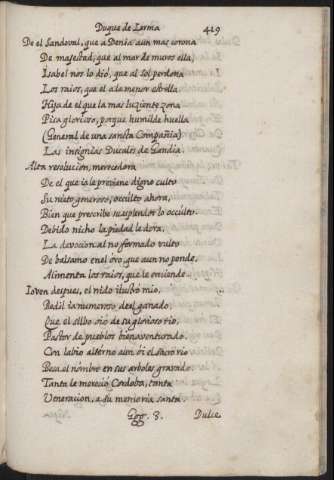 Duque de Lerma 419
De el Sandoval, que a Denia aun mas corona
De majestad, que al mar de muros ella,
Isabel nos lo dió, que al sol perdona
Los raios, que el a la menor estrella.
Hija de el que la mas luziente zona
Pisa glorioso, porque humilde huella
(General de una sancta Compañia)
Las insignias Ducales de Gandia.
Alta resolucion, merecedora
De el que ia le previene digno culto
Su nieto generoso, occulto ahora,
Bien que prescribe su esplendor lo occulto.
Debido nicho la piedad le dora,
La devocion al no formado vulto
De balsamo en el oro, que aun no pende,
Alimenta los raios, que le enciende.
Ioven despues, el nido ilustrò mio,
Redil ia numeroso del ganado,
Que el silbo oiò de su glorioso rio,
Pastor de pueblos bienaventurado.
Con labio alterno aun òi el sacro rio
Besa el nombre en sus arboles gravado.
Tanta le mereciò Cordoba, tanta
Veneracion, a su memoria santa.
Ggg. 3. Dulce